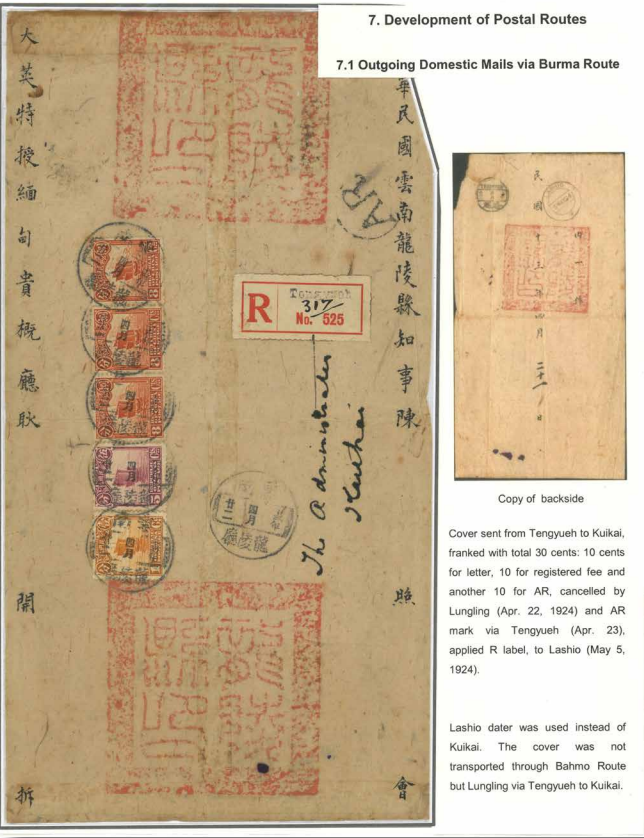 7. Development of Postal Routes
7.1 Outgoing Domestic Mails via Burma Route
華民國雲南龍陵縣知事陳
照
會
大英特授緬甸貴概廳耿
開
拆
AR
R
Tengyueh
317
No. 525
The Administrator
龍陵
四月
廿二
四月
民國十三年四月二十一日
Copy of backside
Cover sent from Tengyueh to Kuikai,
franked with total 30 cents: 10 cents
for letter, 10 for registered fee and
another 10 for AR, cancelled by
Lungling (Apr. 22, 1924) and AR
mark via Tengyueh (Apr. 23),
applied R label, to Lashio (May 5,
1924).
Lashio dater was used instead of
Kuikai. The cover was not
transported through Bahmo Route
but Lungling via Tengyueh to Kuikai.